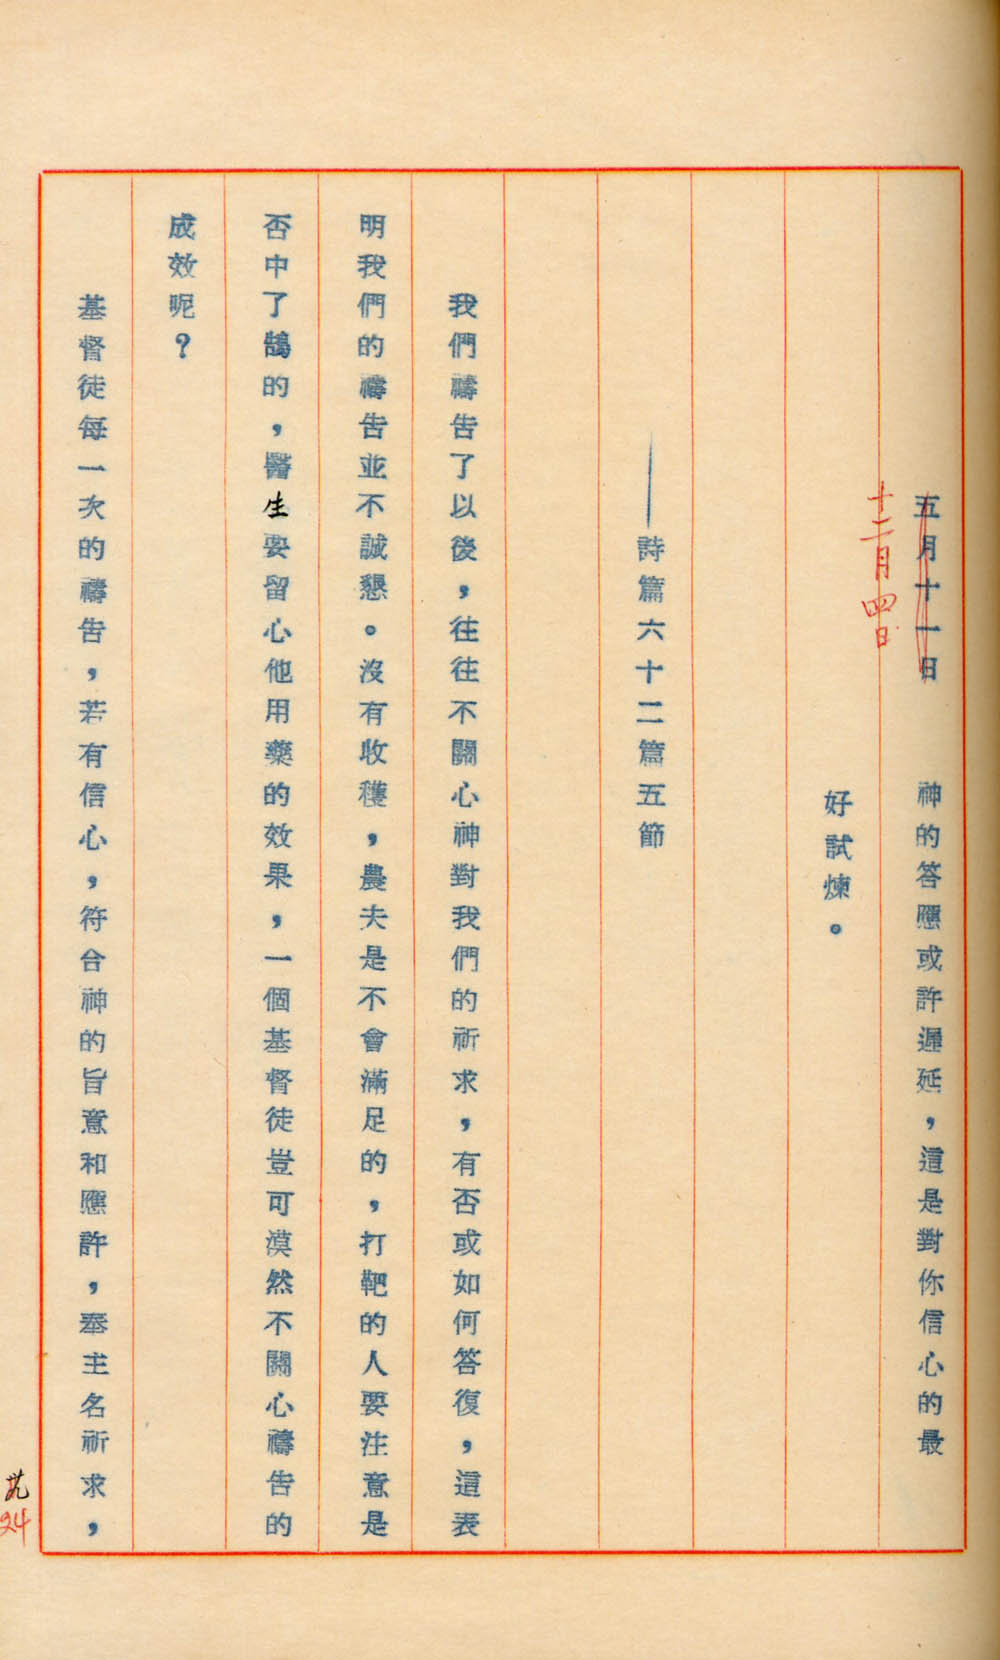 五月十一日　神的答應或許遲延，這是對你信心的最
十二月四日
好試煉。
——詩篇六十二篇五節
我們禱告了以後，往往不關心神對我們的祈求，有否或如何答復，這表
明我們的禱告並不誠懇。沒有收穫，農夫是不會滿足的，打靶的人要注意是
否中了鵠的，醫生要留心他用藥的效果，一個基督徒豈可漠然不關心禱告的
成效呢？
基督徒每一次的禱告，若有信心，符合神的旨意和應許，奉主名祈求，
24